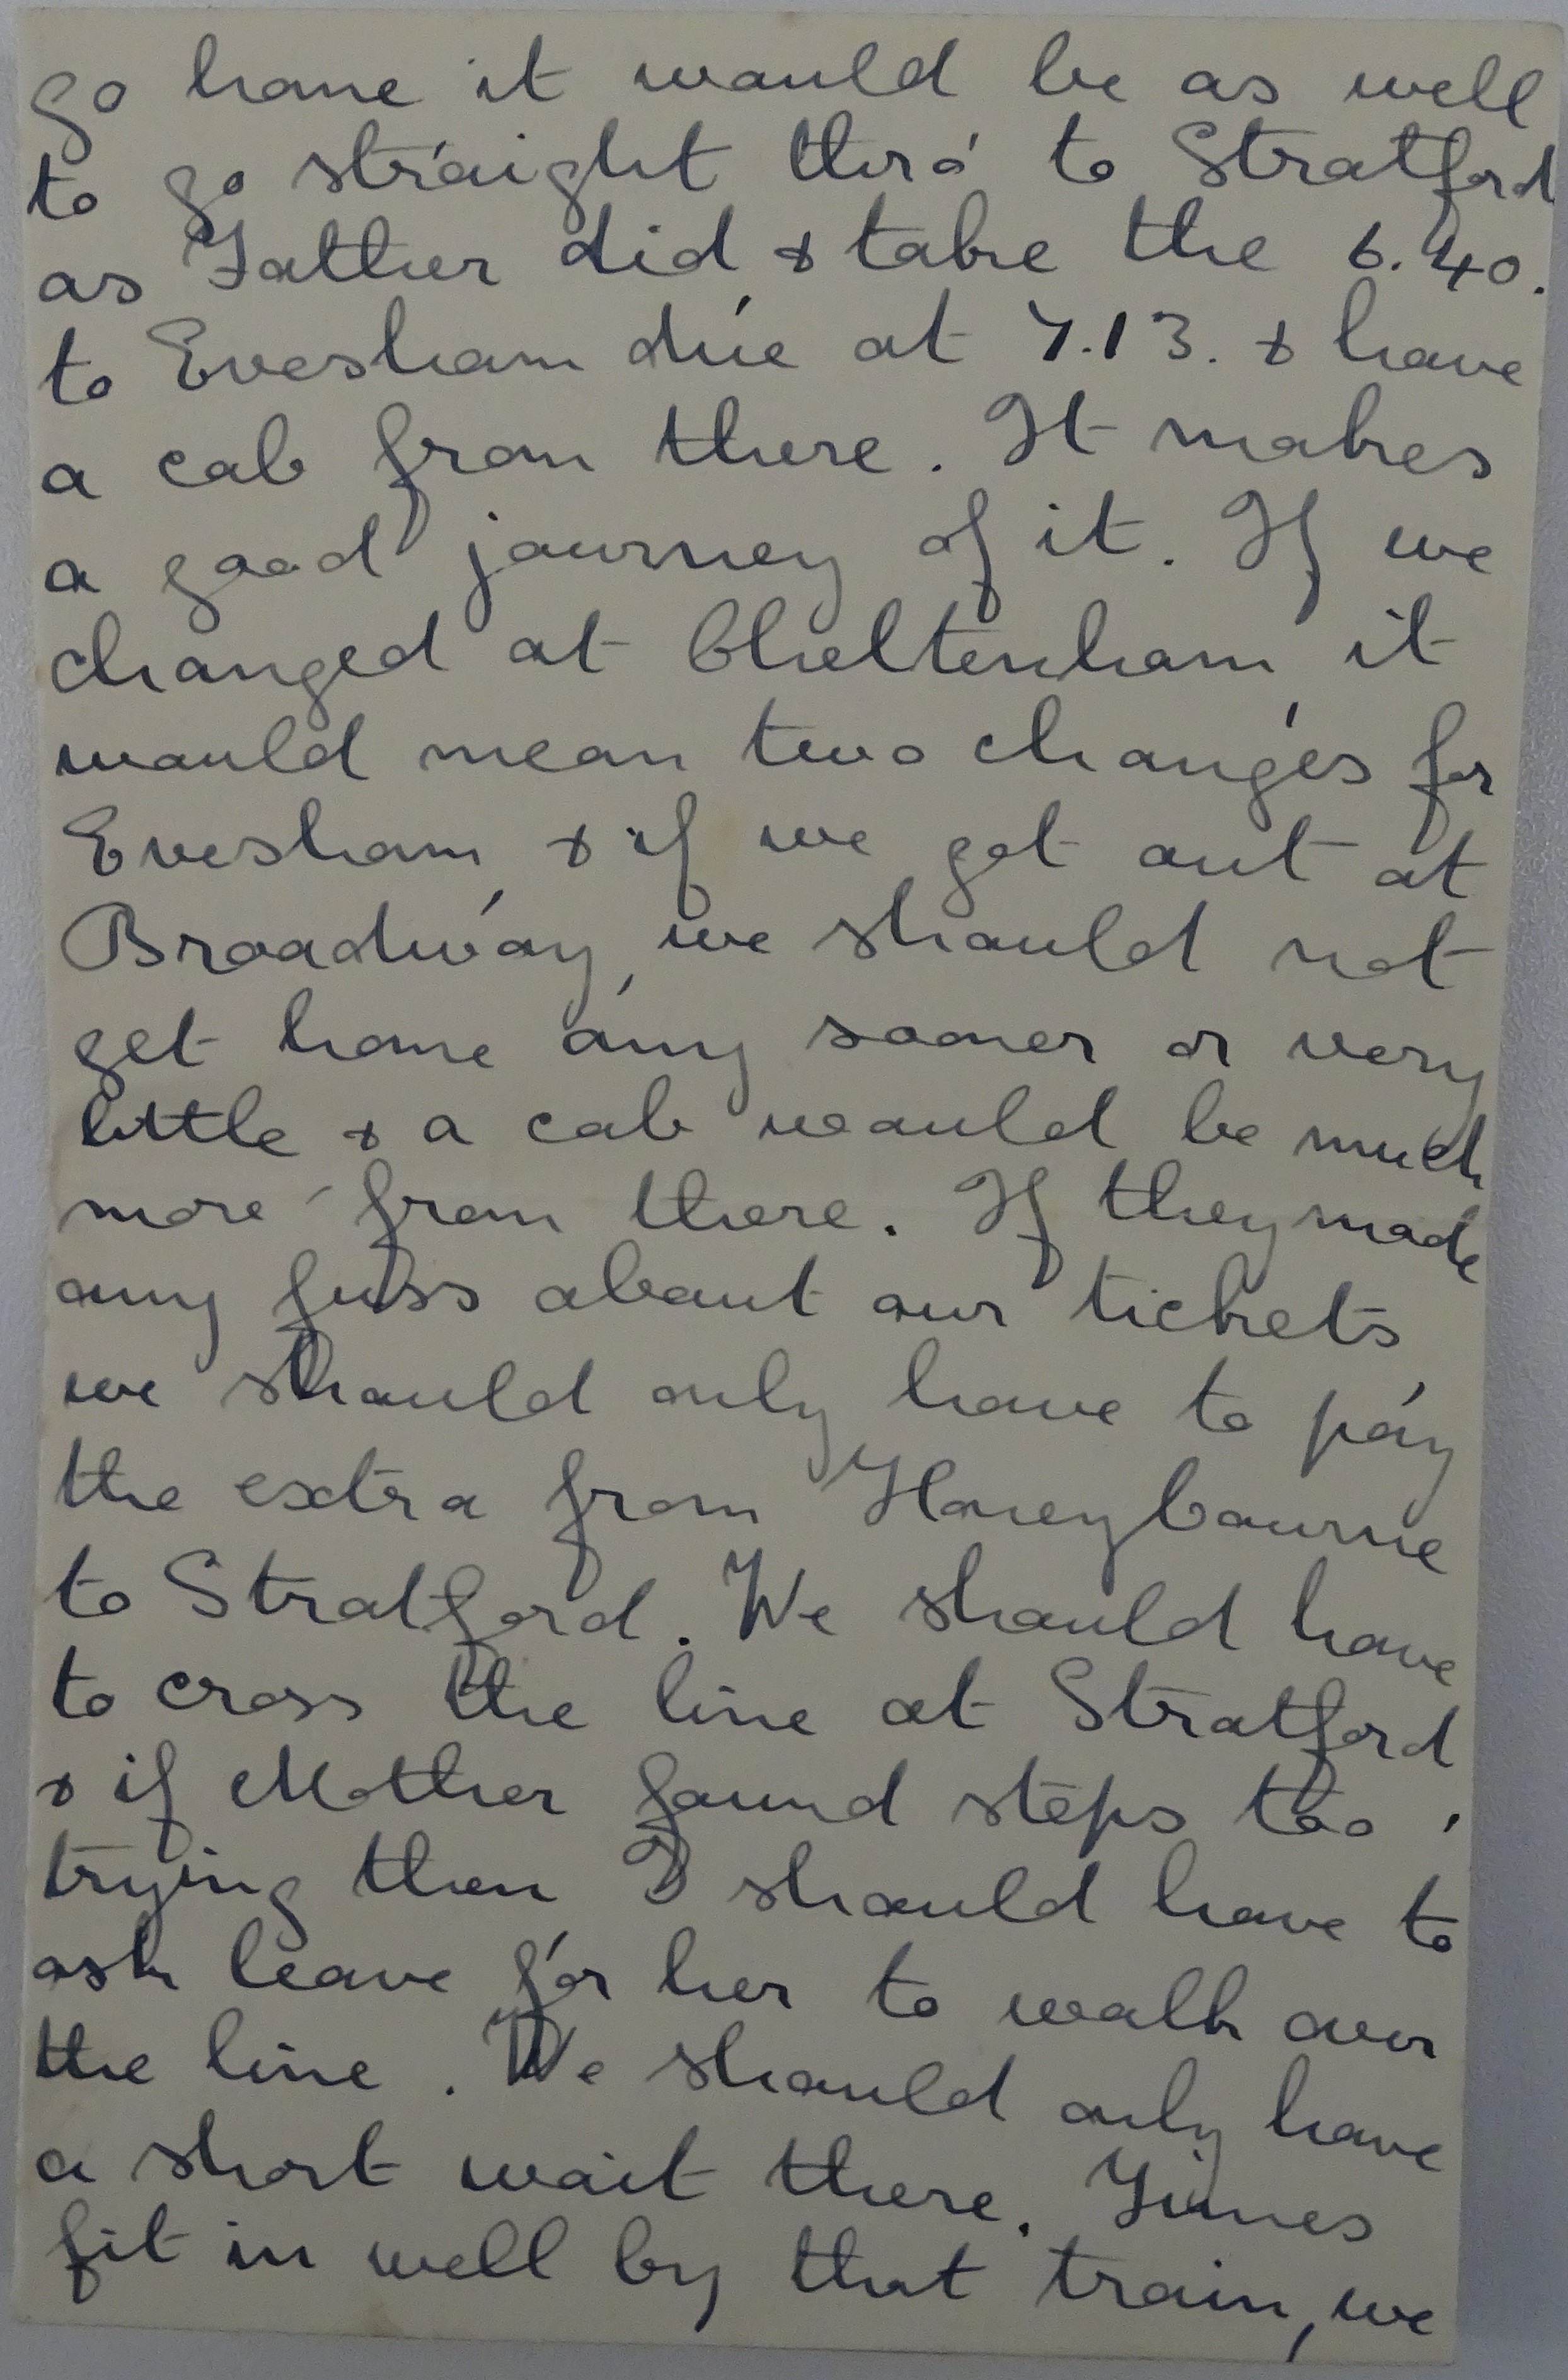 go home it would be as well
to go straight thro' to Stratford
as Father did & take the 6.40.
to Evesham due at 7.13. & have
a cab from there. It makes
a good journey of it. If we
changed at Cheltenham, it
would mean two changes for
Evesham, & if we got out at
Broadway, we should not
get home any sooner or very
little & a cab would be much
more from there. If they made
any fuss about our tickets,
we should only have to pay
the extra from Honeybourne
to Stratford. We should have
to cross the line at Stratford
& if Mother found steps too
trying then I should have to
ask leave for her to walk over
the line. We should only have
a short wait there. Times
fit in well by that train, we